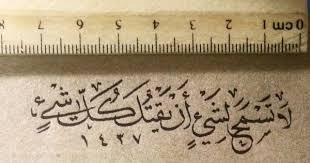 0 1 cm 2 3 4 5 6 7 8
لَا تَسْمَحْ لِشَيْءٍ أَنْ يَقْتُلَ كُلَّ شَيْءٍ
١٤٣٧